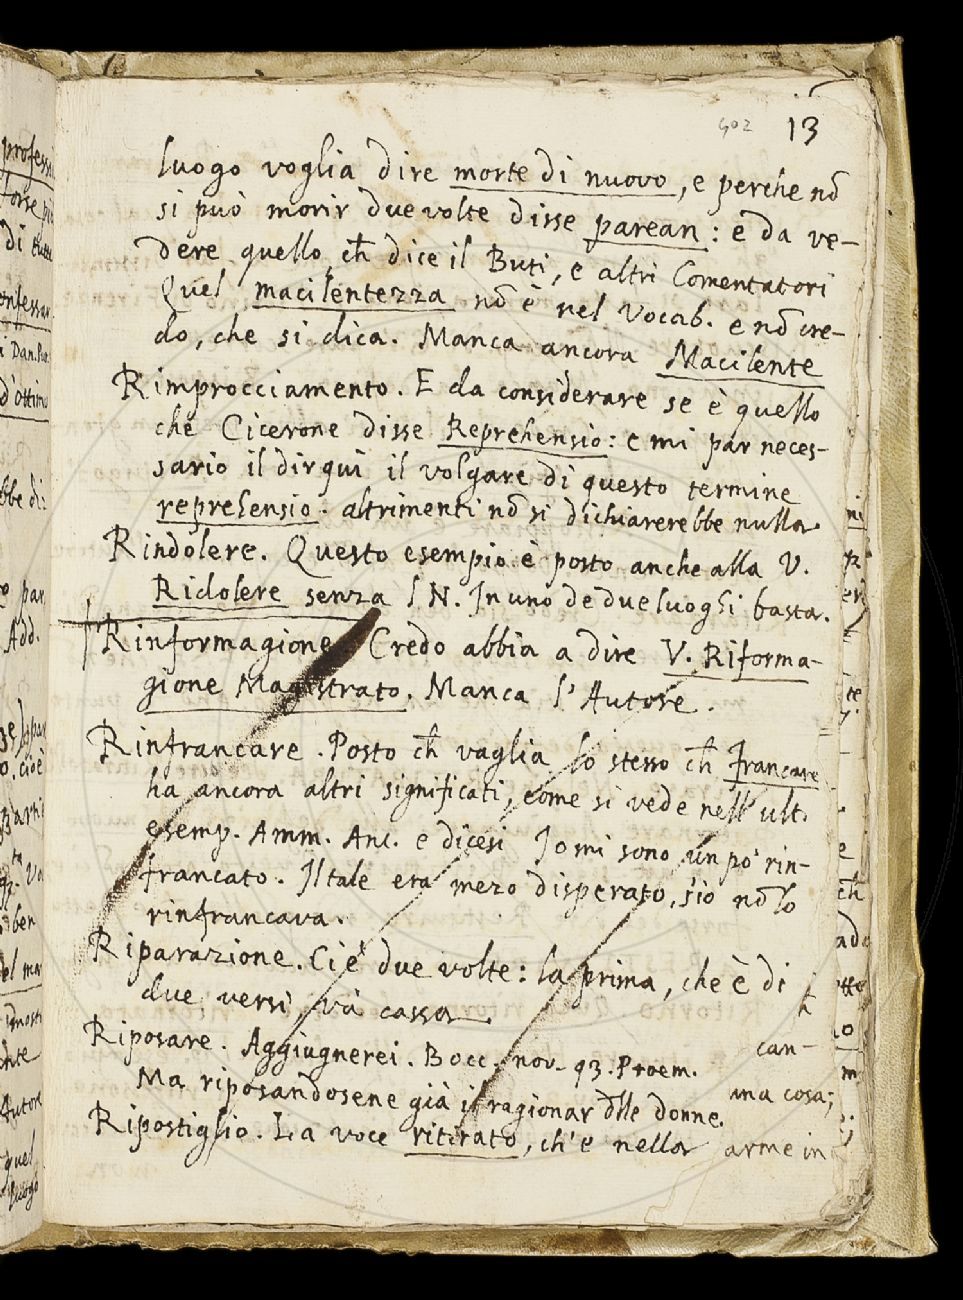 402 13
luogo voglia dire morte di nuovo, e perche nō
si può morir due volte disse parean: è da ve-
dere quello ch̄ dice il Buti, e altri Comentatori
Quel macilentezza nō è nel Vocab. e nō cre-
do, che si dica. Manca ancora Macilente
Rimprocciamento. E da considerare se è quello
che Cicerone disse Reprehensio: e mi par neces-
sario il dir qui il volgare di questo termine
reprehensio. altrimenti nō si dichiarerebbe nulla.
Rindolere. Questo esempio è posto anche alla V.
Ridolere senza l N. In uno de due luoghi basta.
Rinformagione. Credo abbia a dire V. Riforma-
gione Magistrato. Manca l'Autore.
Rinfrancare. Posto ch̄ vaglia lo stesso ch̄ francare
ha ancora altri significati, come si vede nell'ult.
esemp. Amm. Anc. e dicesi Io mi sono un po' rin-
francato. Il tale era mezo disperato, s'io nō lo
rinfrancava.
Riparazione. Ci è due volte: la prima, che è di
due versi, và cassa.
Riposare. Aggiugnerei. Bocc. nov. 93. Proem.
Ma riposandosene già il ragionar dlle donne.
Ripostiglio. La voce ritirato, ch'è nella
can-
una cosa;
arme in